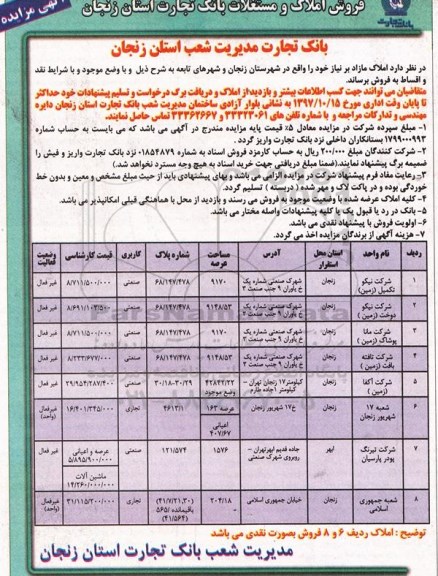 آگهی مزایده
فروش املاک و مستغلات بانک تجارت استان زنجان
بانک تجارت
بانک تجارت مدیریت شعب استان زنجان
در نظر دارد املاک مازاد بر نیاز خود را واقع در شهرستان زنجان و شهرهای تابعه به شرح ذیل و با وضع موجود و با شرایط نقد
و اقساط به فروش برساند.
متقاضیان می توانند جهت کسب اطلاعات بیشتر و بازدید از املاک و دریافت برگ درخواست و تسلیم پیشنهادات خود حداکثر
تا پایان وقت اداری مورخ ۱۳۹۷/۱۰/۱۵ به نشانی بلوار آزادی ساختمان مدیریت شعب بانک تجارت استان زنجان دایره
مهندسی و تدارکات مراجعه و با شماره تلفن های ۳۳۳۲۳۰۶۱ و ۳۳۳۶۴۶۶۷ تماس حاصل نمایند.
۱- مبلغ سپرده شرکت در مزایده معادل ۵٪ قیمت پایه مزایده مندرج در آگهی می باشد که می بایست به حساب شماره
۱۷۹۹۰۰۰۹۹۳ بستانکاران داخلی نزد بانک تجارت واریز گردد.
۲- شرکت کنندگان مبلغ ۲۰۰/۰۰۰ ریال به حساب کارمزد فروش اسناد به شماره ۰۱۸۵۴۸۷۹ نزد بانک تجارت واریز و فیش را
ضمیمه برگ پیشنهاد نمایند.(ضمنا مبلغ دریافتی جهت خرید اسناد به هیچ وجه مسترد نخواهد شد.)
۳- رعایت مفاد فرم پیشنهاد شرکت در مزایده الزامی می باشد و بهای پیشنهادی باید از حیث مبلغ مشخص و معین و بدون خط
خوردگی بوده و در پاکت لاک و مهر شده ( دربسته ) تسلیم گردد.
۴- کلیه املاک عرضه شده با وضعیت موجود به فروش می رسند و بازدید از محل با هماهنگی قبلی امکانپذیر می باشد.
۵- بانک در رد یا قبول یک یا کلیه پیشنهادات واصله مختار می باشد.
۶- اولویت فروش با پیشنهاد نقدی می باشد.
۷- هزینه آگهی از برندگان مزایده اخذ می گردد.
ردیف نام واحد استان محل استقرار آدرس مساحت عرصه شماره پلاک کاربری قیمت کارشناسی وضعیت فعالیت
۱ شرکت نیکو تکمیل (زمین) زنجان شهرک صنعتی شماره یک خ یاوران ۹ جنب صنعت ۳ ۹۱۷۰ ۶۸/۱۴۷/۴۷۸ صنعتی ۸/۷۱۱/۵۰۰/۰۰۰ غیر فعال
۲ شرکت نیکو دوخت (زمین) زنجان شهرک صنعتی شماره یک خ یاوران ۹ جنب صنعت ۴ ۹۱۴۸/۵۳ ۶۸/۱۴۷/۴۷۸ صنعتی ۸/۶۹۱/۱۰۳/۵۰۰ غیر فعال
۳ شرکت مانا پوشاک (زمین) زنجان شهرک صنعتی شماره یک خ یاوران ۹ جنب صنعت ۳ ۹۱۷۰ ۶۸/۱۴۷/۴۷۸ صنعتی ۸/۷۱۱/۵۰۰/۰۰۰ غیر فعال
۴ شرکت تافته بافت (زمین) زنجان شهرک صنعتی شماره یک خ یاوران ۹ جنب صنعت ۴ ۹۱۴۸/۵۳ ۶۸/۱۴۷/۴۷۸ صنعتی ۸/۲۳۳/۶۷۷/۰۰۰ غیر فعال
۵ شرکت آکفا (زمین) زنجان کیلومتر ۱۷ زنجان تهران - کیلومتر ۱ جاده طارم ۴۲۸۴۲/۲۲ وضع موجود ۳۰/۱۸-۳۰/۲۹ صنعتی ۲۹/۹۵۴/۲۸۷/۴۰۰ غیر فعال
۶ شعبه ۱۷ شهریور زنجان زنجان خ۱۷ شهریور زنجان عرصه ۱۶۳ اعیانی ۴۰۷/۶۷ ۴۶۱۳/۱ تجاری ۱۶/۴۰۱/۳۴۵/۰۰۰ غیرفعال (واحد)
۷ شرکت نیرنگ پودر پارسیان ابهر جاده قدیم ابهرتهران - روبروی شهرک صنعتی ۱۵۷۶ ۱۲۱/۵۷۴ صنعتی عرصه و اعیانی ۵/۸۹۵/۹۰۰/۰۰۰ ماشین آلات ۱۴/۲۶۰/۰۰۰/۰۰۰ غیر فعال
۸ شعبه جمهوری اسلامی زنجان خیابان جمهوری اسلامی ۲۰۴/۱۸ (۴۱/۷/۲۱,۳۰) باقیمانده ۵۶۵/ (۴۱/۵۶۴) تجاری ۳۱/۱۱۵/۲۰۰/۰۰۰ غیرفعال (واحد)
توضیح : املاک ردیف ۶ و ۸ فروش بصورت نقدی می باشد
مدیریت شعب بانک تجارت استان زنجان